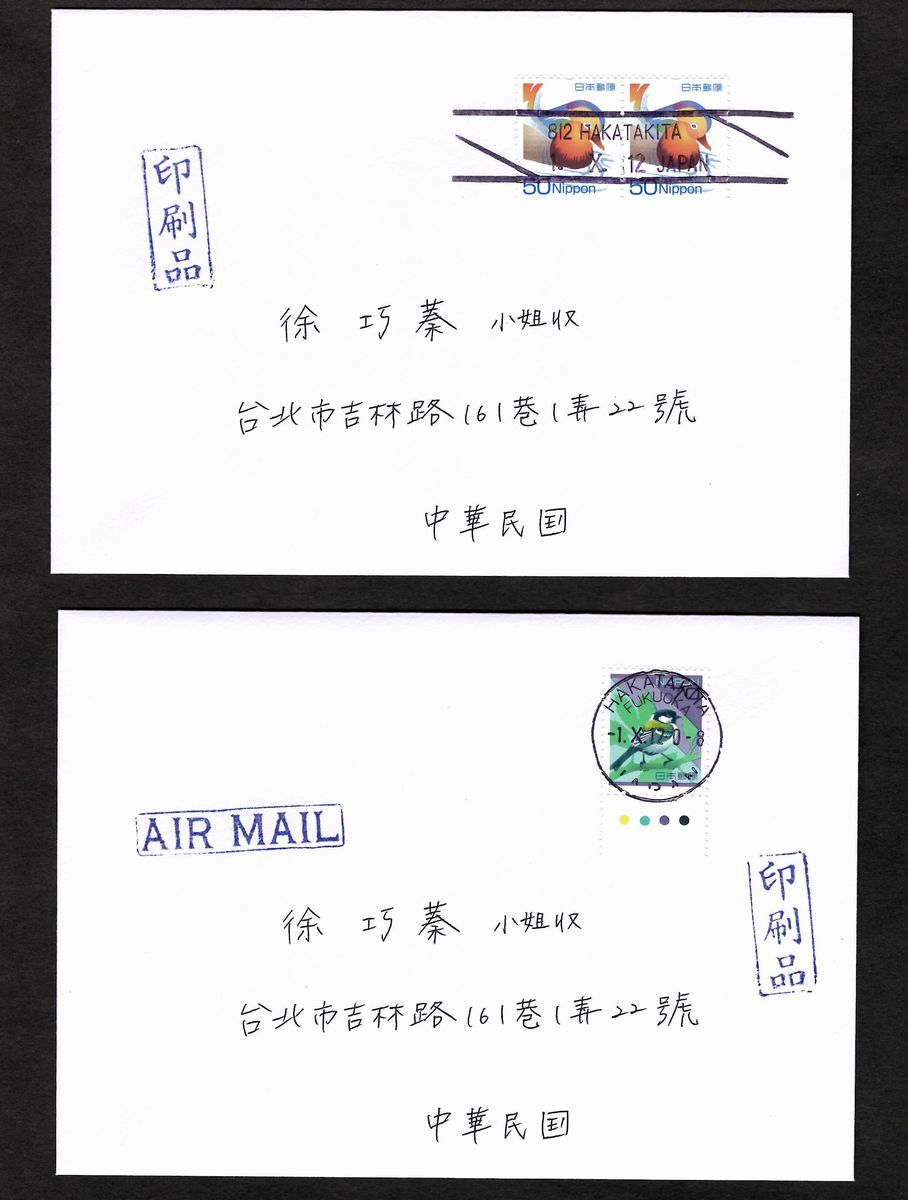 日本郵便 日本郵便
812 HAKATAKITA
1. X. 12 JAPAN
50Nippon 50Nippon
印刷品
徐巧蓁 小姐收
台北市吉林路161巷1弄22號
中華民国
HAKATAKITA
FUKUOKA
-1.X.12 0-8
JAPAN
日本郵便
AIR MAIL
印刷品
徐巧蓁 小姐收
台北市吉林路161巷1弄22號
中華民国